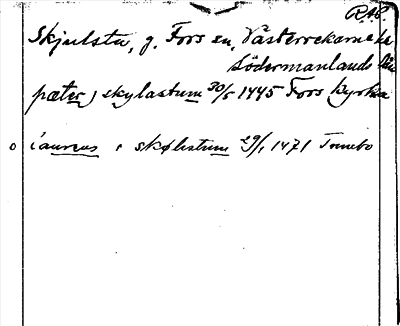 RAP.
Skjulsta, g. Fors sn, Västerrekarne hd
Södermanlands län
pæter j skylastum 30/5 1445 Fors kyrka
o laurens i skølistum 29/1 1471 Tunebo